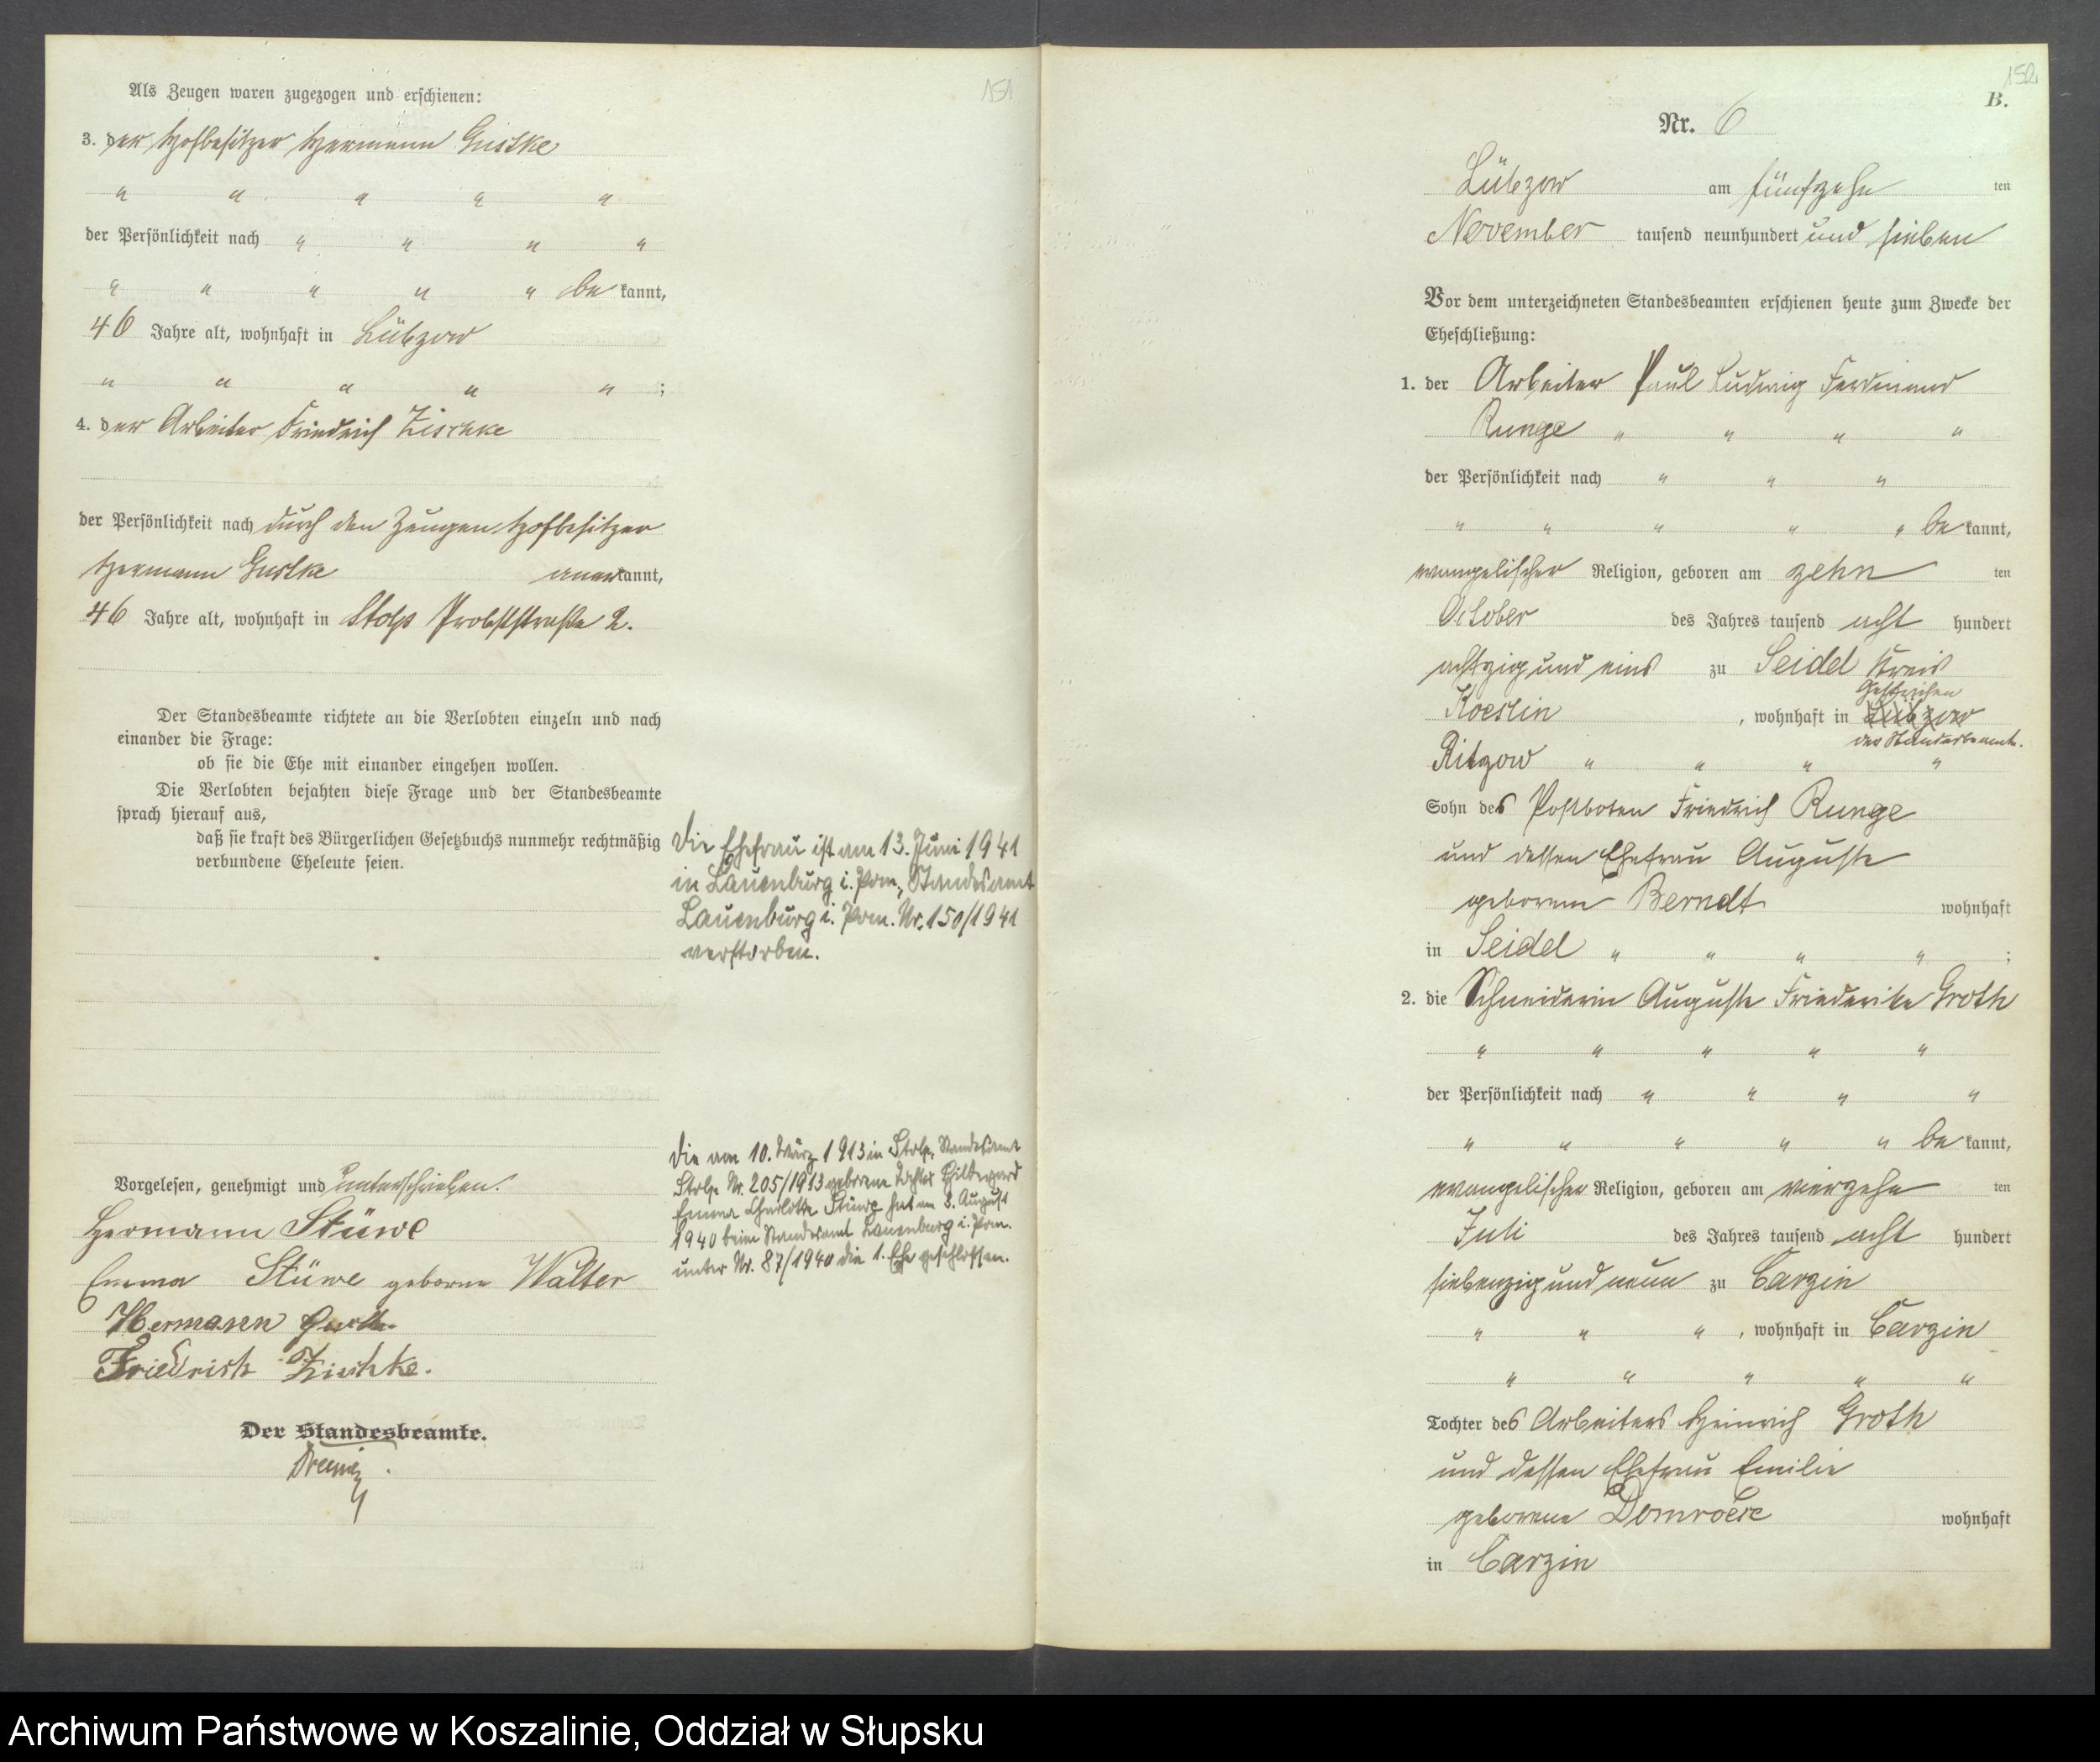 151
Als Zeugen waren zugezogen und erschienen:
3. der Hofbesitzer Hermann Gustke
" " " " "
der Persönlichkeit nach " " " "
" " " " " be kannt,
46 Jahre alt, wohnhaft in Lübzow
" " " " " ;
4. der Arbeiter Friedrich Zischke
der Persönlichkeit nach durch den Zeugen Hofbesitzer
Hermann Gustke anerkannt,
46 Jahre alt, wohnhaft in Stolp Probststraße 2.
Der Standesbeamte richtete an die Verlobten einzeln und nach
einander die Frage:
ob sie die Ehe mit einander eingehen wollen.
Die Verlobten bejahten diese Frage und der Standesbeamte
sprach hierauf aus,
daß sie kraft des Bürgerlichen Gesetzbuchs nunmehr rechtmäßig
verbundene Eheleute seien.
Die Ehefrau ist am 13. Juni 1941
in Lauenburg i. Pom., Standesamt
Lauenburg i. Pom. Nr. 150/1941
verstorben.
Die am 10. März 1913 in Stolp, Standesamt
Stolp Nr. 205/1913 geborene Tochter Hildegard
Emma Charlotte Stüwe hat am 3. August
1940 beim Standesamt Lauenburg i. Pom.
unter Nr. 87/1940 die 1. Ehe geschlossen.
Vorgelesen, genehmigt und unterschrieben.
Hermann Stüwe
Emma Stüwe geborne Walter
Hermann Gustke
Friedrich Zischke.
Der Standesbeamte.
152
B.
Nr. 6
Lübzow am fünfzehn ten
November tausend neunhundert und sieben
Vor dem unterzeichneten Standesbeamten erschienen heute zum Zwecke der
Eheschließung:
1. der Arbeiter Paul Ludwig Ferdinand
Runge " " " "
der Persönlichkeit nach " " "
" " " " " be kannt,
evangelischer Religion, geboren am zehn ten
October des Jahres tausend acht hundert
achtzig und eins zu Seidel Kreis
Gestrichen
Koeslin , wohnhaft in Lübzow
der Standesbeamte.
Ritzow " " " "
Sohn des Postboten Friedrich Runge
und dessen Ehefrau Auguste
geborene Berndt wohnhaft
in Seidel " " " " ;
2. die Schneiderin Auguste Friederike Groth
" " " " "
der Persönlichkeit nach " " " "
" " " " " be kannt,
evangelischer Religion, geboren am vierzehn ten
Juli des Jahres tausend acht hundert
siebenzig und neun zu Carzin
" " " , wohnhaft in Carzin
" " " " "
Tochter des Arbeiters Heinrich Groth
und dessen Ehefrau Emilie
geborene Domröse wohnhaft
in Carzin
Archiwum Państwowe w Koszalinie, Oddział w Słupsku